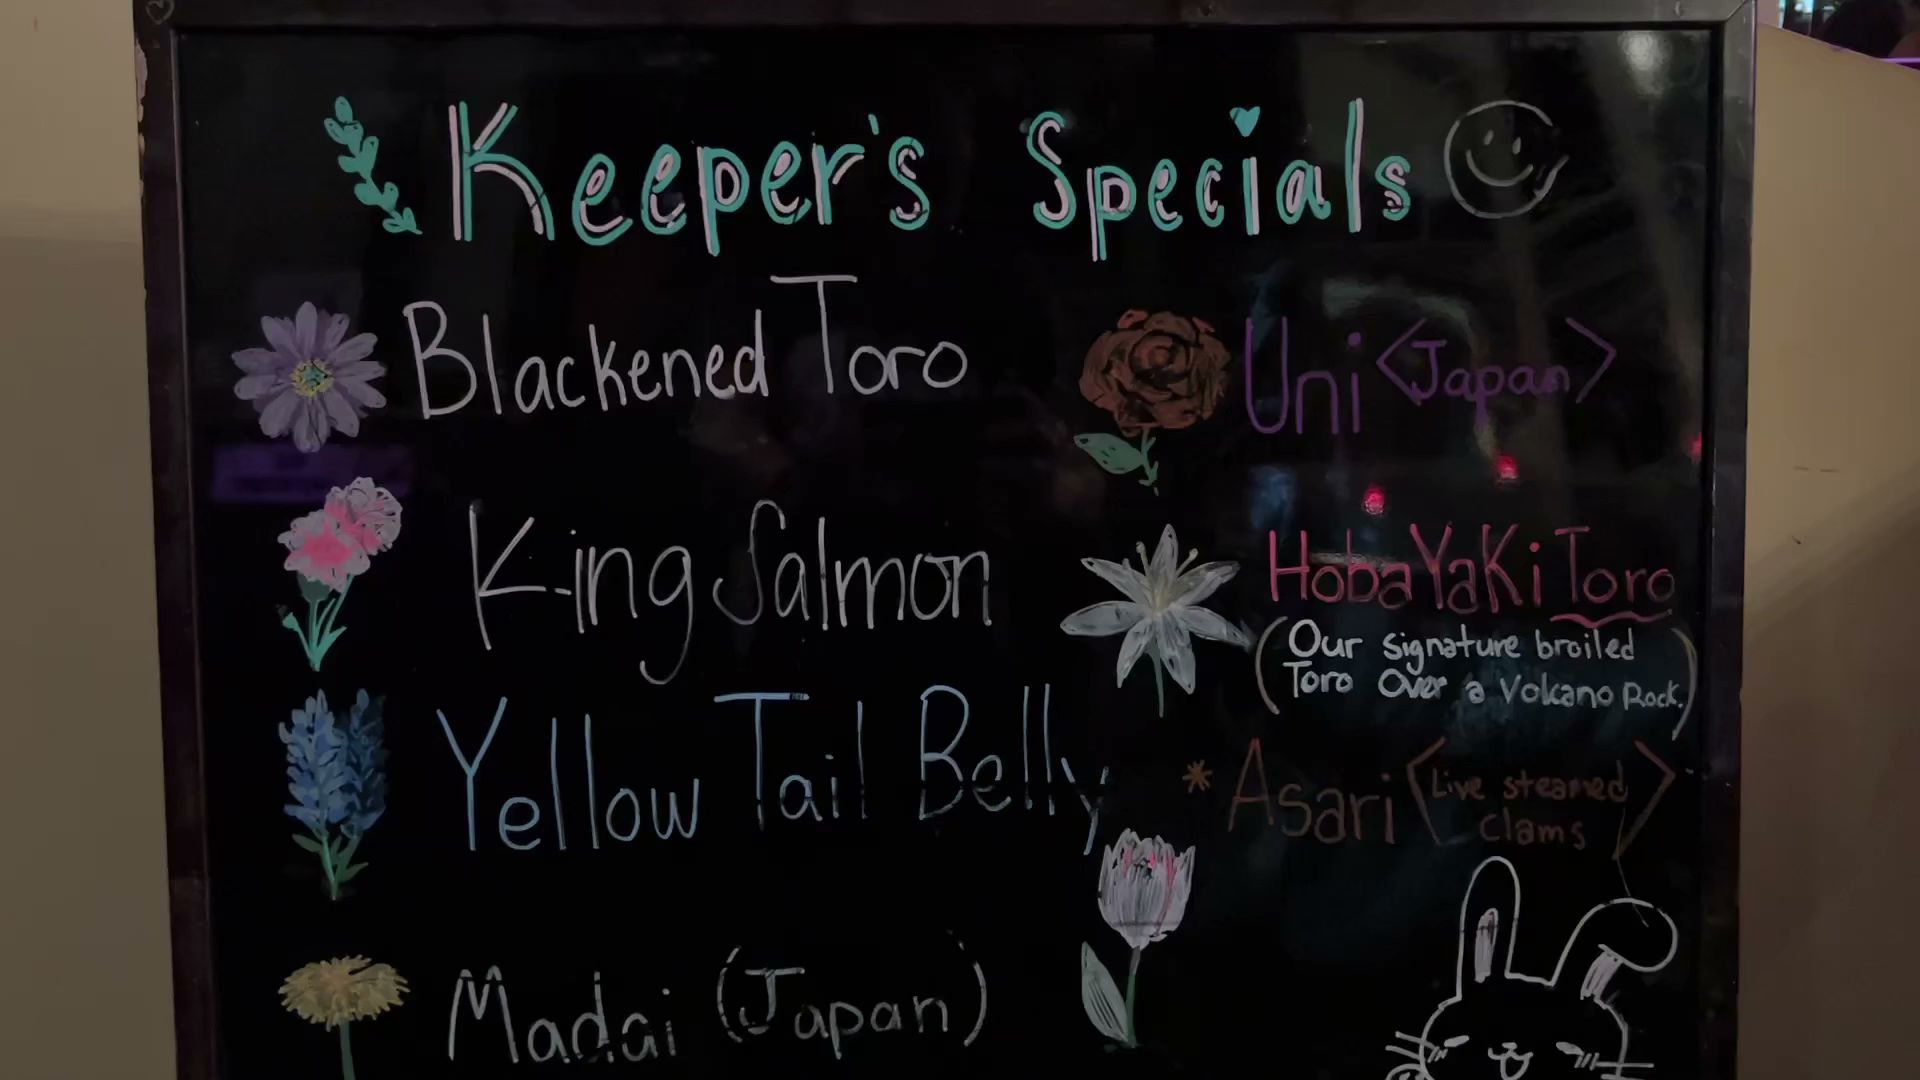 Keeper's Specials
Blackened Toro
King Salmon
Yellow Tail Belly
Madai (Japan)
Uni <Japan>
HobaYaKi Toro
(Our signature broiled
Toro Over a Volcano Rock.)
* Asari <Live steamed
clams>